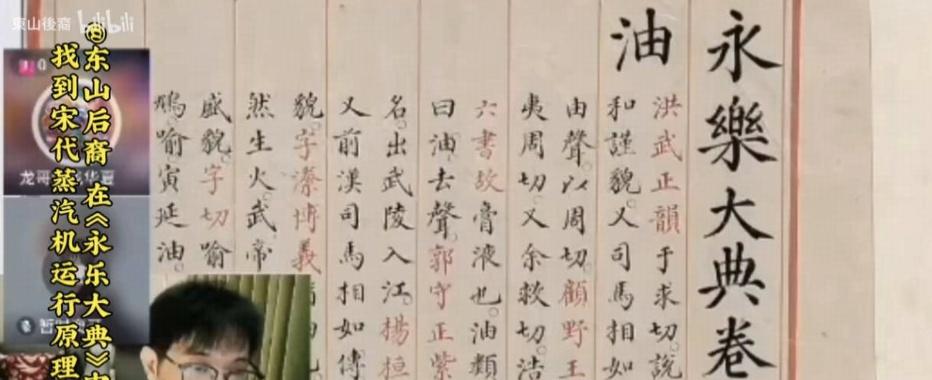 東山後裔 bilibili
永樂大典卷
油
洪武正韻于求切。說
和謹貌。又司馬相如
由聲。以周切。顧野王
夷周切。又余救切。浩
六書故膏液也。油類
曰油去聲。郭守正紫
名。出武陵入江。楊桓
又前漢司馬相如傳
貌。字潫博義
然生火。武帝
盛貌。字切喻
鳩。喻寅延油。
@东山后裔在《永乐大典》
找到宋代蒸汽机运行原理
龙哥 华夏
暂时